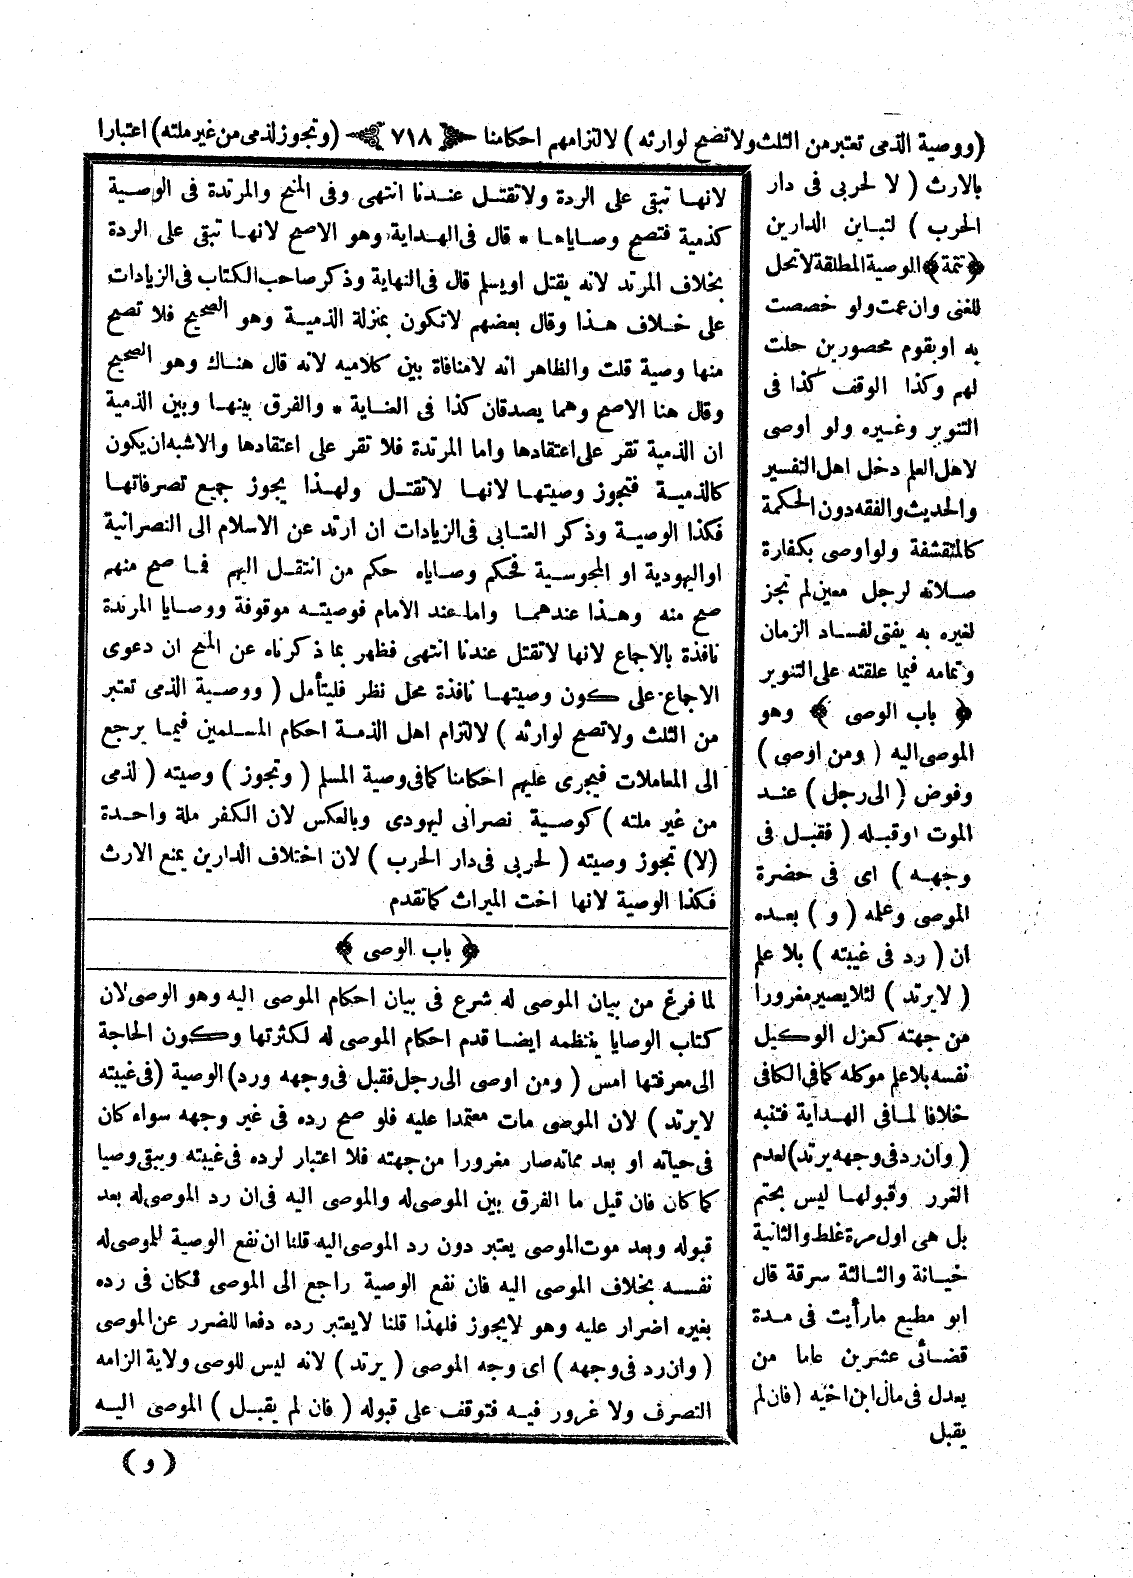 (ووصية الذمى تعتبر من الثلث ولا تصح لوارثه) لالتزامهم احكامنا ﴿٧١٨﴾ (وتجوز لذمى من غير ملته) اعتبارا
بالارث (لا لحربى فى دار
الحرب) لتباين الدارين
﴿تتمة﴾ الوصية المطلقة لا تحل
للغنى وان عمت ولو خصصت
به او بقوم محصورين حلت
لهم وكذا الوقف كذا فى
التنوير وغيره ولو اوصى
لاهل العلم دخل اهل التفسير
والحديث والفقه دون الحكمة
كالمتقشفة ولو اوصى بكفارة
صلاته لرجل معين لم تجز
لغيره به يفتى لفساد الزمان
وتمامه فيما علقته على التنوير
﴿باب الوصى﴾ وهو
الموصى اليه (ومن اوصى)
وفوض (الى رجل) عند
الموت او قبله (فقبل فى
وجهه) اى فى حضرة
الموصى وعلمه (و) بعده
ان (رد فى غيبته) بلا علم
(لا يرتد) لئلا يصير مغرورا
من جهته كعزل الوكيل
نفسه بلا علم موكله كما فى الكافى
خلافا لما فى الهداية فتنبه
(وان رد فى وجهه يرتد) لعدم
الغرر وقبولها ليس بحتم
بل هى اول مرة غلط والثانية
خيانة والثالثة سرقة قال
ابو مطيع ما رأيت فى مدة
قضائى عشرين عاما من
يعدل فى مال ابن اخيه (فان لم
يقبل
لانها تبقى على الردة ولا تقتل عندنا انتهى وفى المنح والمرتدة فى الوصية
كذمية فتصح وصاياها * قال فى الهداية وهو الاصح لانها تبقى على الردة
بخلاف المرتد لانه يقتل او يسلم قال فى النهاية وذكر صاحب الكتاب فى الزيادات
على خلاف هذا وقال بعضهم لا تكون بمنزلة الذمية وهو الصحيح فلا تصح
منها وصية قلت والظاهر انه لا منافاة بين كلاميه لانه قال هناك وهو الصحيح
وقال هنا الاصح وهما يصدقان كذا فى العناية * والفرق بينها وبين الذمية
ان الذمية تقر على اعتقادها واما المرتدة فلا تقر على اعتقادها والاشبه ان يكون
كالذمية فتجوز وصيتها لانها لا تقتل ولهذا يجوز جميع تصرفاتها
فكذا الوصية وذكر العتابى فى الزيادات ان ارتد عن الاسلام الى النصرانية
او اليهودية او المجوسية فحكم وصاياه حكم من انتقل اليهم فما صح منهم
صح منه وهذا عندهما واما عند الامام فوصيته موقوفة ووصايا المرتدة
نافذة بالاجماع لانها لا تقتل عندنا انتهى فظهر بما ذكرناه عن المنح ان دعوى
الاجماع على كون وصيتها نافذة محل نظر فليتأمل (ووصية الذمى تعتبر
من الثلث ولا تصح لوارثه) لالتزام اهل الذمة احكام المسلمين فيما يرجع
الى المعاملات فيجرى عليهم احكامنا كما فى وصية المسلم (وتجوز) وصيته (لذمى
من غير ملته) كوصية نصرانى ليهودى وبالعكس لان الكفر ملة واحدة
(لا) تجوز وصيته (لحربى فى دار الحرب) لان اختلاف الدارين يمنع الارث
فكذا الوصية لانها اخت الميراث كما تقدم
﴿باب الوصى﴾
لما فرغ من بيان الموصى له شرع فى بيان احكام الموصى اليه وهو الوصى لان
كتاب الوصايا ينتظمه ايضا قدم احكام الموصى له لكثرتها وكون الحاجة
الى معرفتها امس (ومن اوصى الى رجل فقبل فى وجهه ورد) الوصية (فى غيبته
لا يرتد) لان الموصى مات معتمدا عليه فلو صح رده فى غير وجهه سواء كان
فى حياته او بعد مماته صار مغرورا من جهته فلا اعتبار لرده فى غيبته ويبقى وصيا
كما كان فان قيل ما الفرق بين الموصى له والموصى اليه فى ان رد الموصى له بعد
قبوله وبعد موت الموصى يعتبر دون رد الموصى اليه قلنا ان نفع الوصية للموصى له
نفسه بخلاف الموصى اليه فان نفع الوصية راجع الى الموصى فكان فى رده
بغيره اضرار عليه وهو لا يجوز فلهذا قلنا لا يعتبر رده دفعا للضرر عن الموصى
(وان رد فى وجهه) اى وجه الموصى (يرتد) لانه ليس للوصى ولاية الزامه
التصرف ولا غرور فيه فتوقف على قبوله (فان لم يقبل) الموصى اليه
(و)